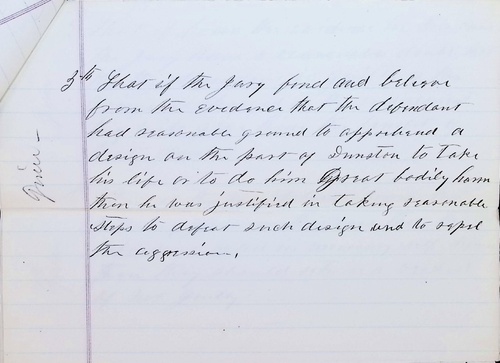 3th That if the Jury find and believe
from the evidence that the defendant
had reasonable ground to apprehend a
design on the part of Dunston to take
his life or to do him Great bodily harm
then he was justified in taking reasonable
steps to defeat such design and to repel
the aggression,
Given -